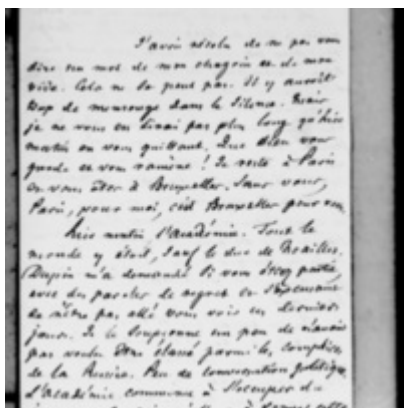 J'avais résolu de ne pas vous
dire un mot de mon chagrin et de mon
vide. Cela ne se peut pas. Il y aurait
trop de mensonge dans le silence. Mais
je ne vous en dirai pas plus long qu'hier
matin en vous quittant. Que Dieu vous
garde et vous ramène ! Je reste à Paris
et vous êtes à Bruxelles. Sans vous,
Paris, pour moi, c'est Bruxelles pour vous.
Hier matin l'Académie. Tout le
monde y était, sauf le duc de Noailles.
Dupin m'a demandé si vous étiez partie,
avec des paroles de regret et
de n'être pas allé vous voir ces derniers
jours. Je le soupçonne un peu de n'avoir
pas voulu être classé parmi les complices
de la Russie. Peu de conversation politique.
L'Académie commence à s'occuper de